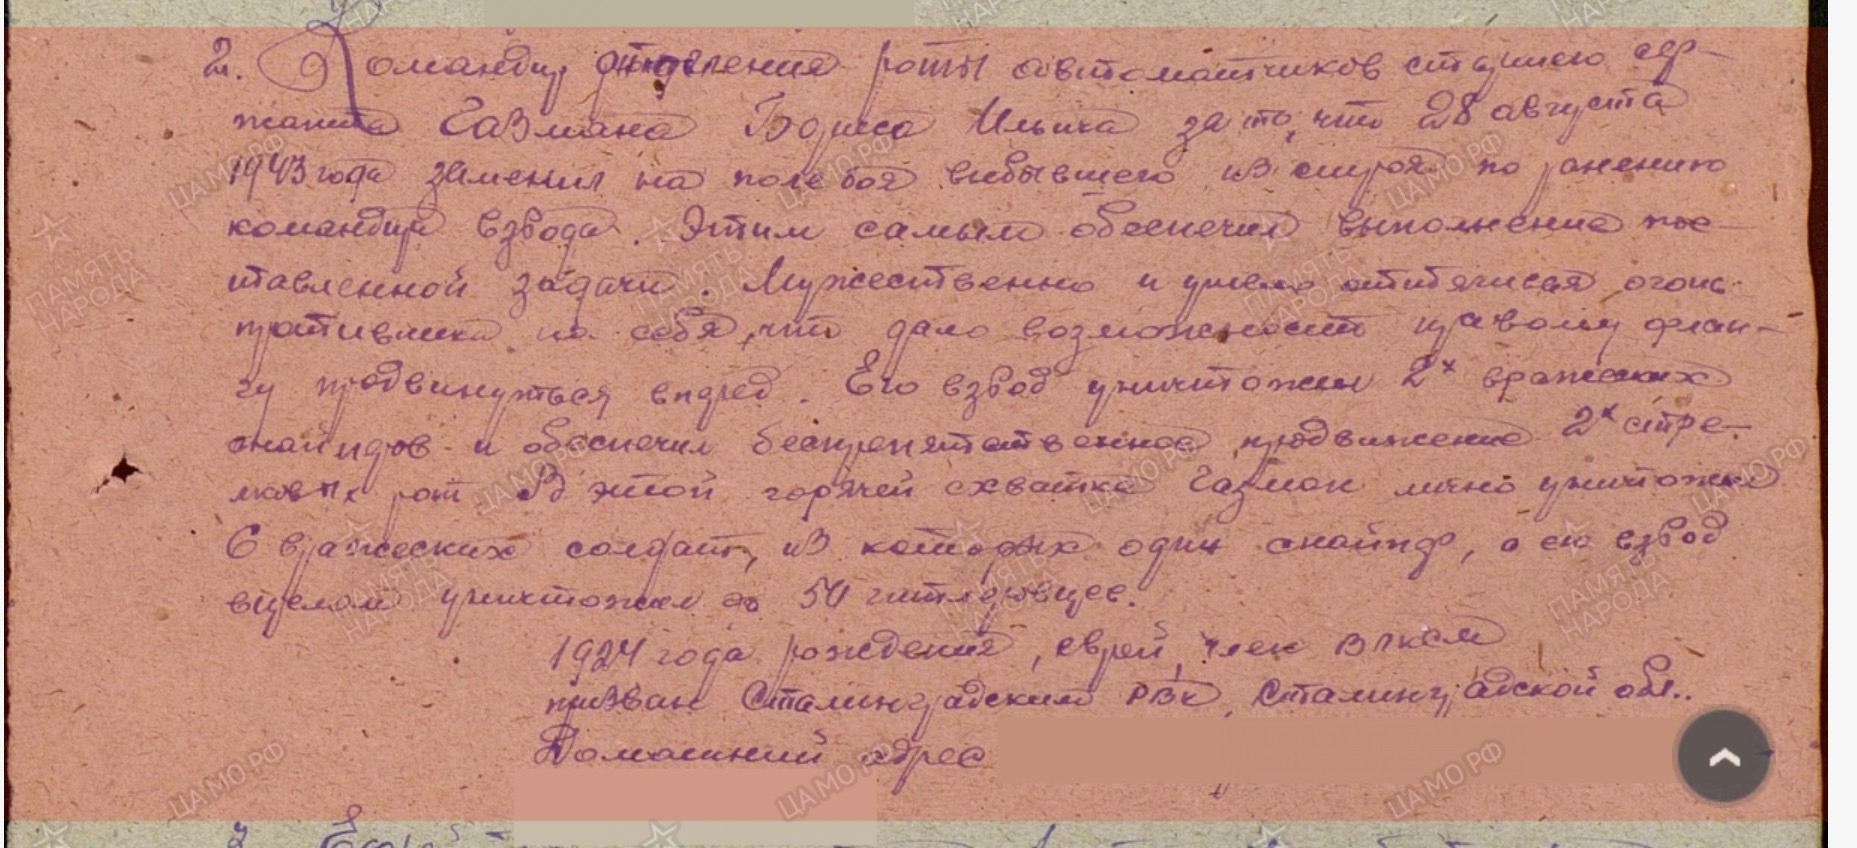 2. Командир отделения роты автоматчиков старшего сер-
жанта Газмана Бориса Ильича за то, что 28 августа
1943 года заменил на поле боя выбывшего из строя по ранению
командира взвода. Этим самым обеспечил выполнение пос-
тавленной задачи. Мужественно и умело огонь
противника на себя, что дало возможность правому флан-
гу продвинуться вперед. Его взвод уничтожил 2х вражеских
снайперов и обеспечил беспрепятственное продвижение 2х стре-
лковых рот В этой горячей схватке Газман лично уничтожил
6 вражеских солдат, из которых один снайпер, а его взвод
вцелом уничтожил до 50 гитлеровцев.
1924 года рождения, еврей, член ВЛКСМ
призван Сталинградским РВК, Сталинградской обл..
Домашний адрес